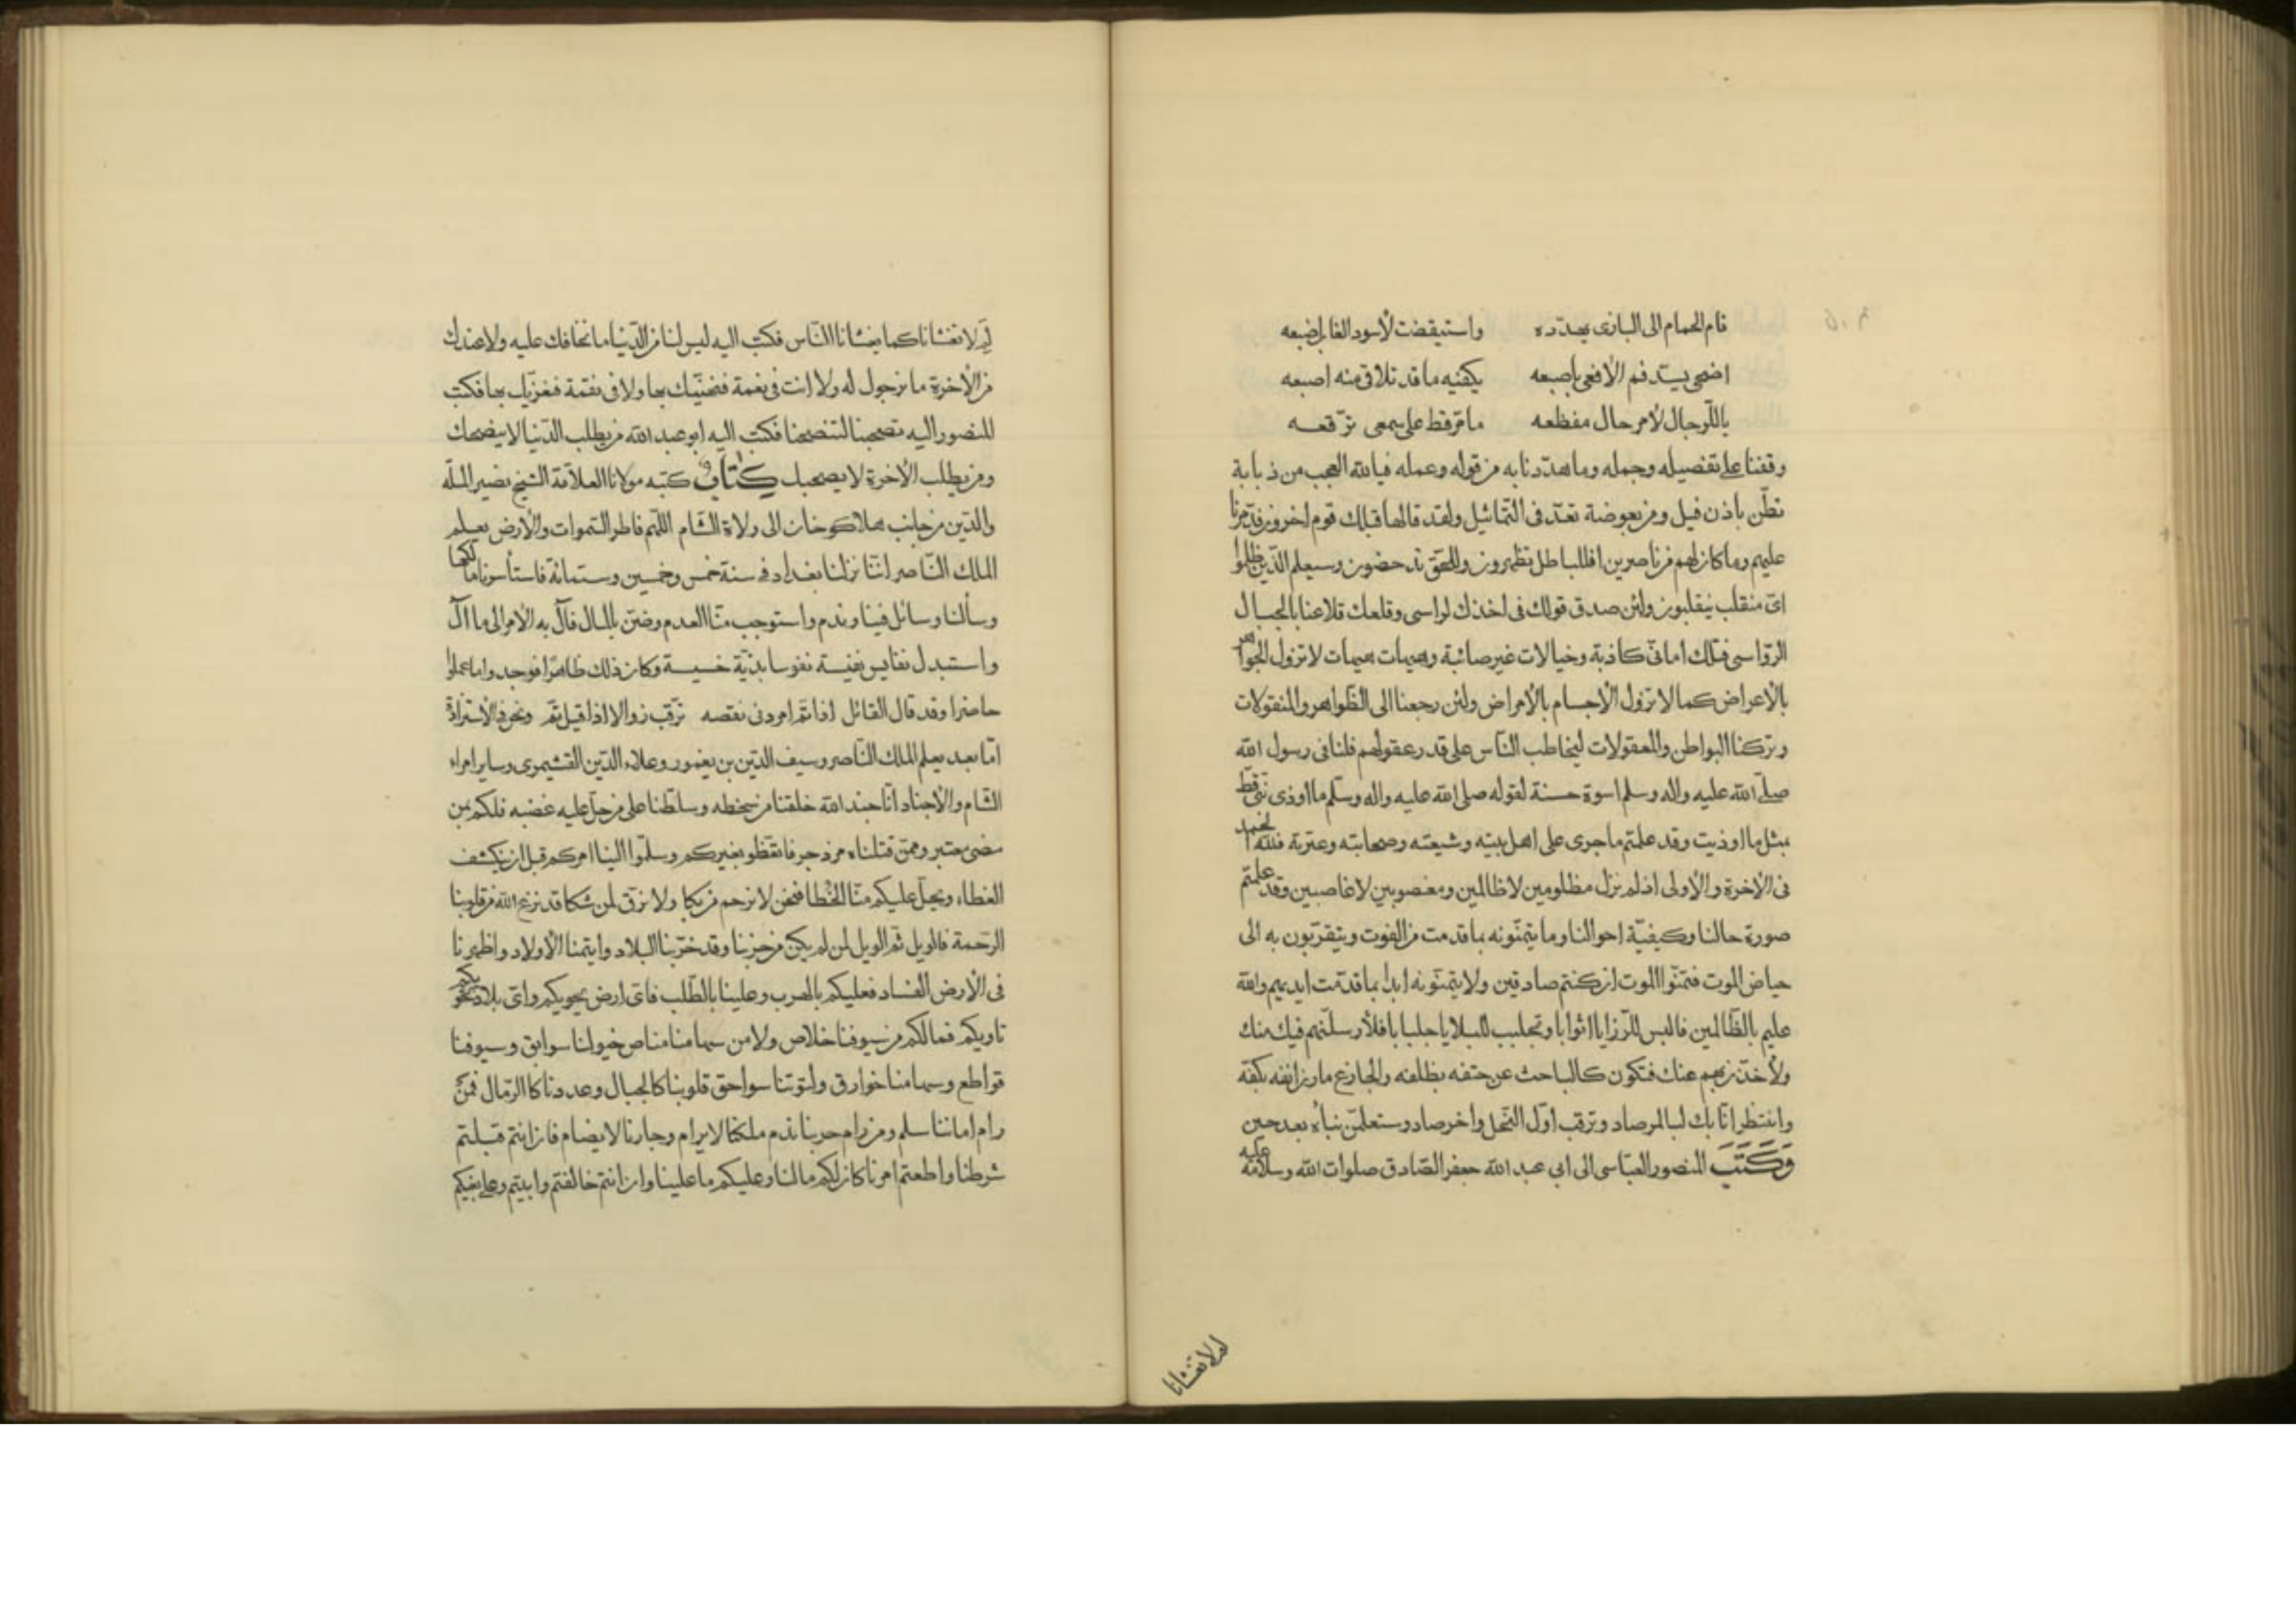 قام الحمام الى البازى يهدّده واستيقضت لأسود الغاب اضبعه
اضحى يسدّ فم الأفعى بأصبعه يكفيه ما قد تلاقى منه اصبعه
ياللّرجال لأمر حال مفظعه ما مرّ قط على سمعى توقّعه
وقفنا على تفصيله وجمله وما هدّدنا به من قوله وعمله فيالله العجب من ذبابة
تطنّ باذن فيل ومن بعوضة تعدّ فى التماثيل ولقد قالها قبلك قوم اخرون فدمّرنا
عليهم وما كان لهم من ناصرين افللباطل تظهرون وللحق تدحضون وسيعلم الذين ظلموا
اىّ منقلب ينقلبون ولئن صدق قولك فى اخذك لراسى وقلعك قلاعنا بالجبال
الرّواسى فتلك امانىّ كاذبة وخيالات غير صائبة وهيهات هيهات لا تزول الجواهر
بالأعراض كما لا تزول الأجسام بالأمراض ولئن رجعنا الى الظواهر والمنقولات
وتركنا البواطن والمعقولات ليخاطب النّاس على قدر عقولهم فلنا فى رسول الله
صلّى الله عليه واله وسلم اسوة حسنة لقوله صلى الله عليه واله وسلّم ما اوذى نبىّ قطّ
بمثل ما اوذيت وقد علمتم ما جرى على اهل بيته وشيعته وصحابته وعترته فلله الحمد
فى الأخرة والأولى اذ لم نزل مظلومين لا ظالمين ومغصوبين لا غاصبين وقد علمتم
صورة حالنا وكيفيّة احوالنا وما يتمنّونه بما قدمت من الفوت ويتقرّبون به الى
حياض الموت فتمنّوا الموت ان كنتم صادقين ولا يتمنّونه ابدا بما قدّمت ايديهم والله
عليم بالظّالمين فالبس للرّزايا اثوابا وتجلبب للبلايا جلبابا فلأرسلنّهم فيك منك
ولأخذنّهم عنك فتكون كالباحث عن حتفه بظلفه والجادع مارن انفه بكفّه
وانتظر انّا بك لبالمرصاد وترقب اوّل النّحل واخر صاد وستعلمنّ نبأه بعد حين
وَكَتَبَ المنصور العبّاسى الى ابى عبد الله جعفر الصّادق صلوات الله وسلامه عليه
لم لا تغشانا
لِمَ لا تغشانا كما يغشانا النّاس فكتب اليه ليس لنا من الدّنيا ما نخافك عليه ولا عندك
من الأخرة ما نرجول له ولا انت فى نعمة فنهنّيك بها ولا فى نقمة فنعزّيك بها فكتب
المنصور اليه تصحبنا لتنصحنا فكتب اليه ابو عبد الله من يطلب الدّنيا لا ينصحك
ومن يطلب الأخرة لا يصحبك كتاب كتبه مولانا العلاّمة الشيخ نصير الملّه
والدّين من جانب هلاكو خان الى ولاة الشام اللّهم فاطر السّموات والأرض يعلم
الملك النّاصر انّنا نزلنا بغداد فى سنة خمس وخمسين وستمائة فاستأسرنا مالكها
وسألنا وسائل فينا وندم واستوجب منّا العدم وضنّ بالمال فآل به الأمر الى ما آل
واستبدل نفايس نفيسة نفوسا بذيّة خسيسة وكان ذلك ظاهرا فوجدوا ما عملوا
حاضرا وقد قال القائل اذا تمّ امر دنى نقصه ترقّب زوالا اذا قيل تمّ ونحن فى الأستزادة
امّا بعد يعلم الملك النّاصر وسيف الدّين بن يغمور وعلاء الدّين القشيموى وساير امراء
الشّام والأجناد انّا جند الله خلقنا من سخطه وسلّطنا على من حلّ عليه غضبه فلكم بمن
مضى معتبر وممّن قتلناه مزدجر فاتعّظوا بغيركم وسلّموا الينا امركم قبل ان ينكشف
الغطاء ويحلّ عليكم منّا الخطا فنحن لا نرحم من بكا ولا نرقّ لمن شكا قد نزع الله من قلوبنا
الرّحمة فالويل ثمّ الويل لمن لم يكن من حزبنا وقد خرّبنا البلاد وايتمنا الأولاد واظهرنا
فى الأرض الفساد فعليكم بالهرب وعلينا بالطّلب فاىّ ارض يحويكم واىّ بلاد
تاويكم فما لكم من سيوفنا خلاص ولا من سهامنا مناص خيولنا سوابق وسيوفنا
قواطع وسهامنا خوارق ولتوتنا سواحق قلوبنا كالجبال وعددنا كالرّمال فمن
رام اماننا سلم ومن رام حربنا ندم ملكنا لا يرام وجارنا لا يضام فان انتم قبلتم
شرطنا واطعتم امرنا كان لكم ما لنا وعليكم ما علينا وان انتم خالفتم وابيتم وعلى بغيكم